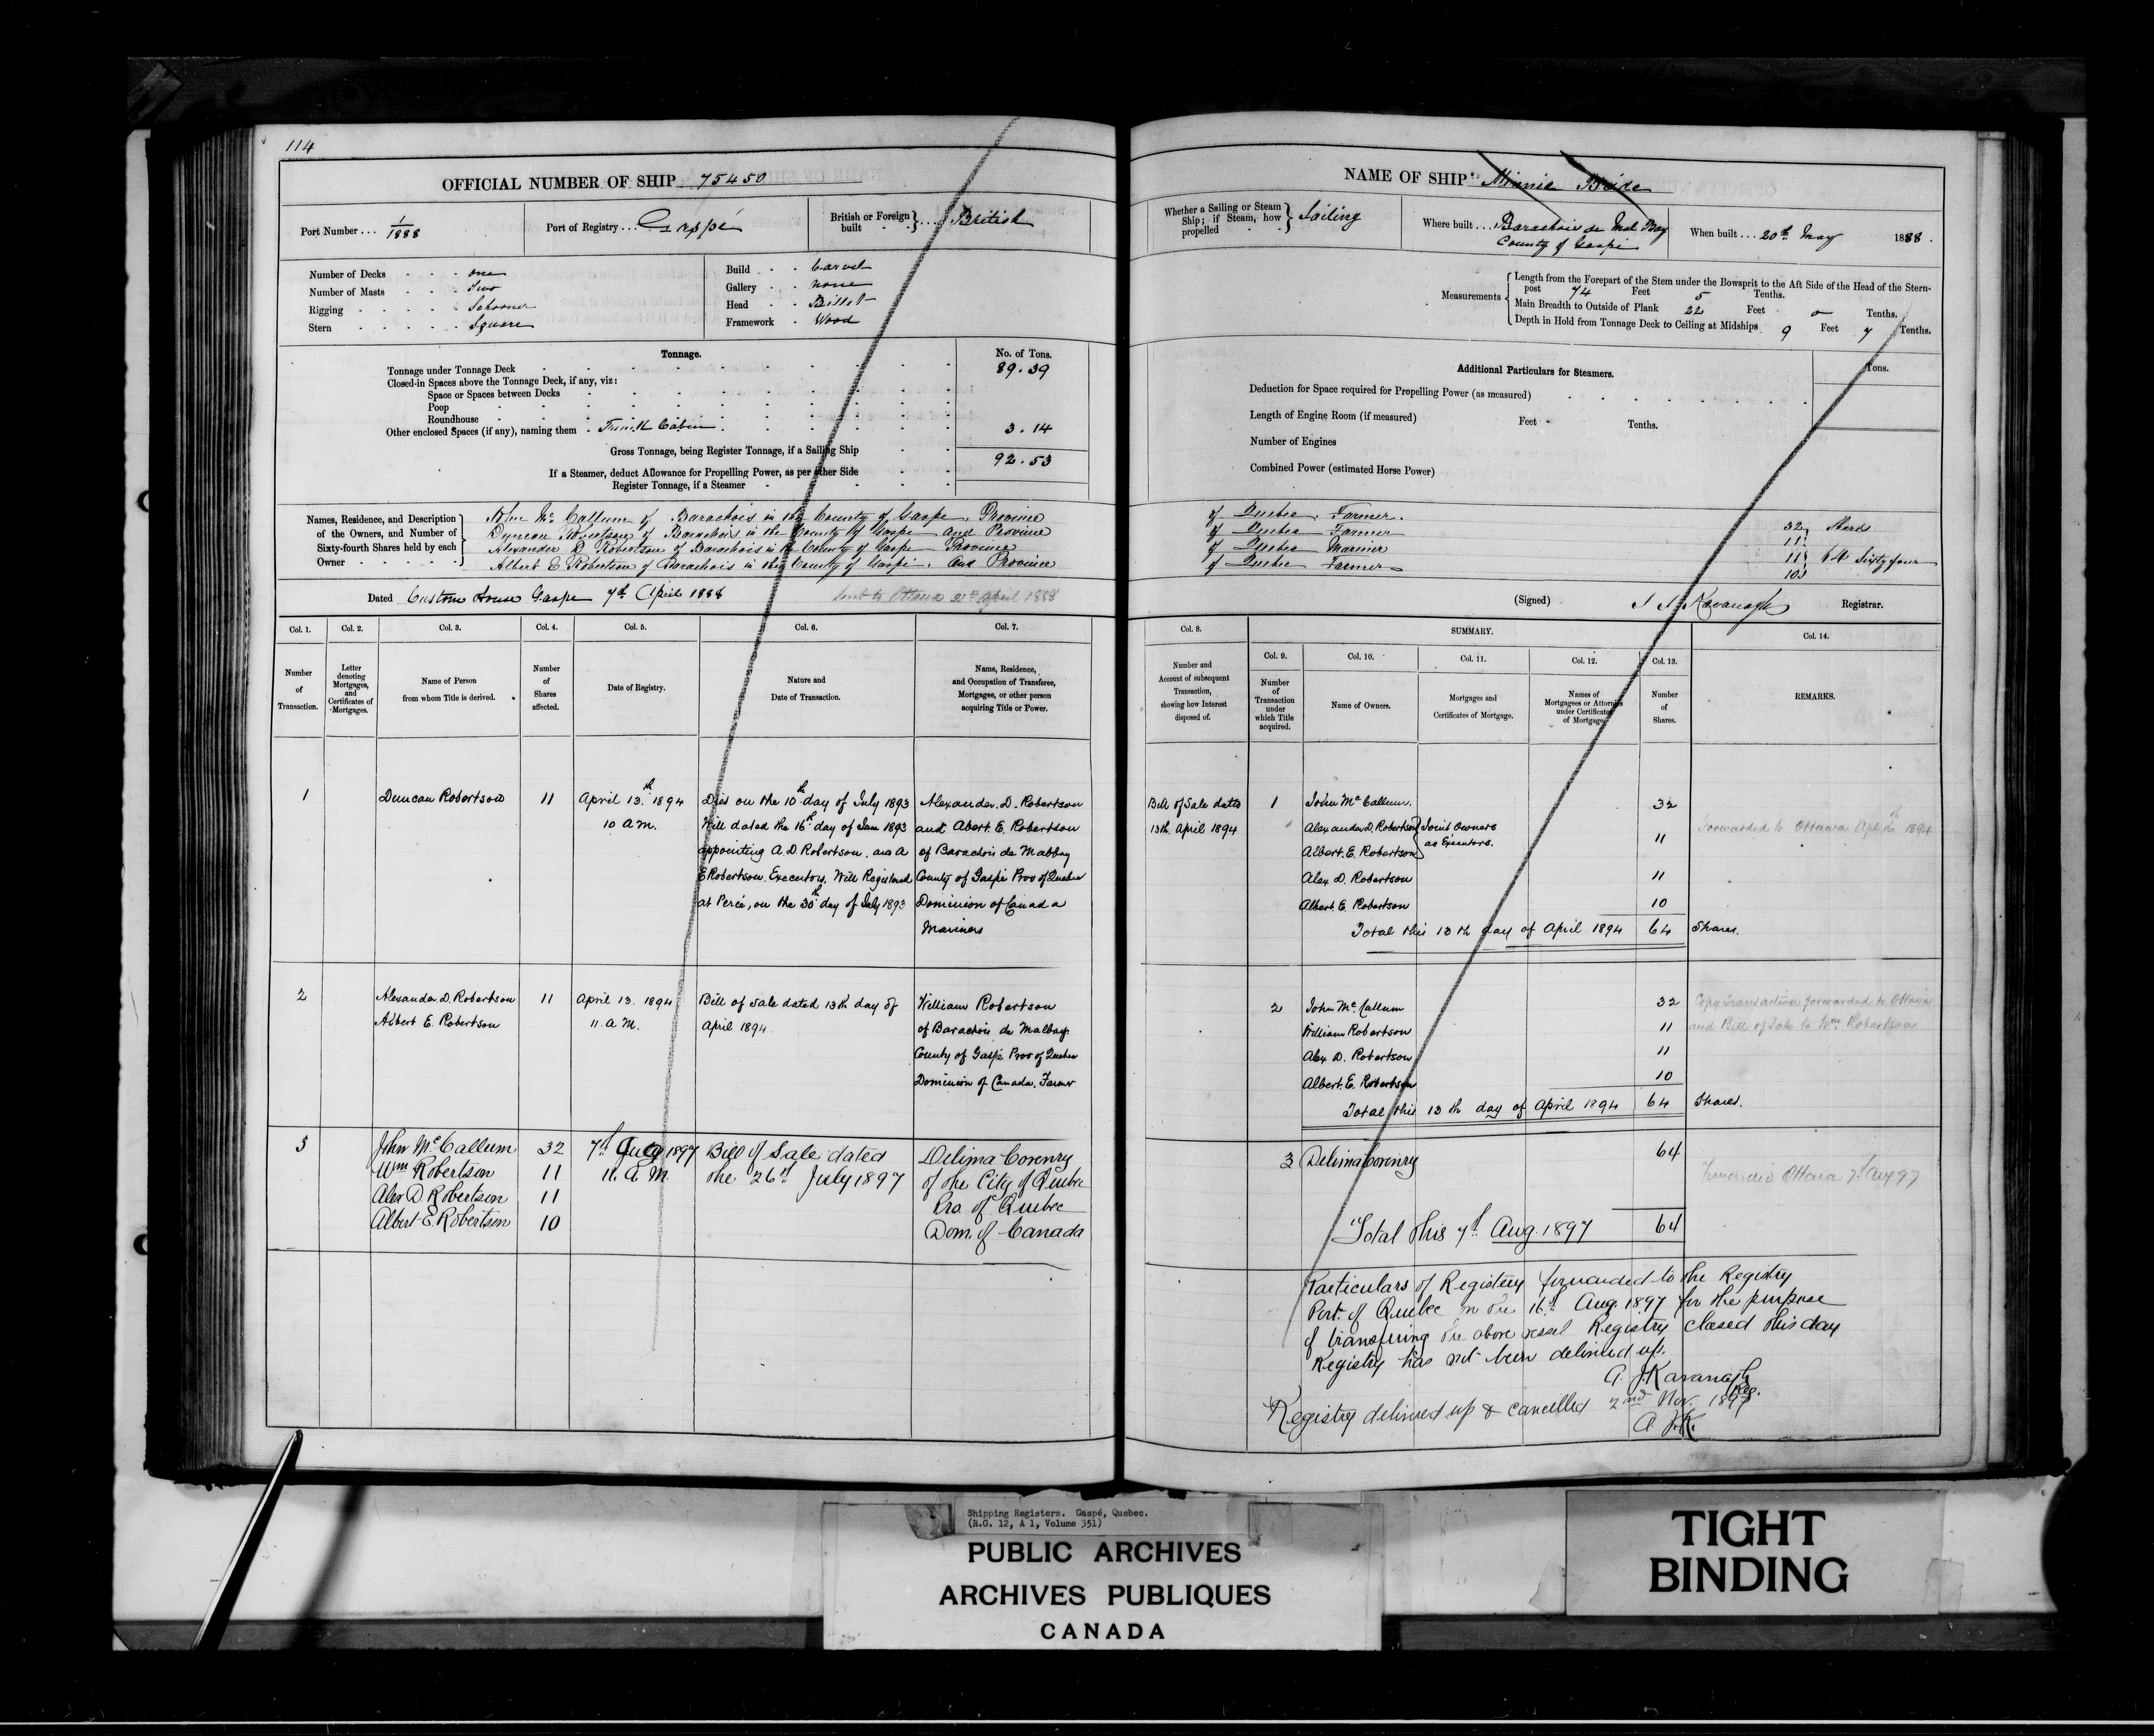 114
OFFICIAL NUMBER OF SHIP 75450
Port Number ... 1/1888
Port of Registry ... Gaspé
British or Foreign built } .... British
Number of Decks - - - one
Number of Masts - - - Two
Rigging - - - - - Schooner
Stern - - - - - Square
Build - - Carvel
Gallery - - none
Head - - Billet
Framework - Wood
Tonnage.
No. of Tons.
Tonnage under Tonnage Deck 89.39
Closed-in Spaces above the Tonnage Deck, if any, viz:
Space or Spaces between Decks
Poop
Roundhouse
Other enclosed Spaces (if any), naming them - Cabin 3.14
Gross Tonnage, being Register Tonnage, if a Sailing Ship 92.53
If a Steamer, deduct Allowance for Propelling Power, as per other Side
Register Tonnage, if a Steamer
Names, Residence, and Description of the Owners, and Number of Sixty-fourth Shares held by each Owner
John McCallum of Barachois in the County of Gaspe, Province
Duncan Robertson of Barachois in the County of Gaspe and Province
Alexander D Robertson of Barachois in the County of Gaspe Province
Albert E Robertson of Barachois in the County of Gaspé. and Province
Dated Custom House Gaspe 7th April 1888
Sent to Ottawa 21st April 1888
Col. 1.
Col. 2.
Col. 3.
Col. 4.
Col. 5.
Col. 6.
Col. 7.
Number of Transaction.
Letter denoting Mortgages, and Certificates of Mortgages.
Name of Person from whom Title is derived.
Number of Shares affected.
Date of Registry.
Nature and Date of Transaction.
Name, Residence, and Occupation of Transferee, Mortgagee, or other person acquiring Title or Power.
1
Duncan Robertson
11
April 13th 1894
10 A M.
Died on the 10th day of July 1893
Will dated the 16th day of Jan 1893
appointing A. D Robertson, and A
E Robertson. Executors, Will Registered
at Percé, on the 30th day of July 1893
Alexander. D. Robertson
and Abert. E. Robertson
of Barachois de Malbay
County of Gaspé Prov of Quebec
Dominion of Canada
Mariners
2
Alexander. D. Robertson
Albert E. Robertson
11
April 13. 1894
11. A M.
Bill of Sale dated 13th day of
April 1894.
William Robertson
of Barachois de Malbay.
County of Gaspé Prov of Quebec
Dominion of Canada. Farmer
3
John McCallum 32
Wm Robertson 11
Alex D Robertson 11
Albert E. Robertson 10
7th Aug 1897
11. A M
Bill of Sale dated
the 26th July 1897
Delima Corenry
of the City of Quebec
Pro. of Quebec
Dom. of Canada
NAME OF SHIP Minnie Bride
Whether a Sailing or Steam Ship; if Steam, how propelled } Sailing
Where built .... Barachois de Mal Bay
County of Gaspé
When built ... 20th May 1888.
Measurements
Length from the Forepart of the Stem under the Bowsprit to the Aft Side of the Head of the Stern-
post 74 Feet 5 Tenths.
Main Breadth to Outside of Plank 22 Feet 0 Tenths.
Depth in Hold from Tonnage Deck to Ceiling at Midships 9 Feet 7 Tenths.
Additional Particulars for Steamers.
Tons.
Deduction for Space required for Propelling Power (as measured)
Length of Engine Room (if measured) Feet Tenths.
Number of Engines
Combined Power (estimated Horse Power)
of Quebec. Farmer. 32
of Quebec Farmer 11
of Quebec Mariner 11 64 Sixty four
of Quebec Farmer 10
(Signed) Kavanagh Registrar.
Col. 8.
SUMMARY.
Col. 9.
Col. 10.
Col. 11.
Col. 12.
Col. 13.
Col. 14.
Number and Account of subsequent Transaction, showing how Interest disposed of.
Number of Transaction under which Title acquired.
Name of Owners.
Mortgages and Certificates of Mortgage.
Names of Mortgagees or Attornies under Certificates of Mortgage.
Number of Shares.
REMARKS.
Bill of Sale dated
13th. April 1894
1
John McCallum. 32
Alexander D. Robertson } Joint Owners
Albert. E. Robertson } as Executors. 11
Alex D. Robertson 11
Albert. E. Robertson 10
Total this 13th day of April 1894 64 Shares.
Forwarded to Ottawa Apl 16th 1894
2
John McCallum 32
William Robertson 11
Alex D. Robertson 11
Albert. E. Robertson 10
Total this 13th day of April 1894 64 Shares.
Copy transaction forwarded to Ottawa
and Bill of Sale to Wm Robertson
3 Delima Corenry 64
Total this 7th Aug. 1897 64
Ottawa 7th Aug 97
Particulars of Registry forwarded to the Registry
Port of Quebec on the 16th Aug. 1897 for the purpose
of transfering the above vessel Registry closed this day
Registry has not been delivered up.
A. J. Kavanagh
Reg.
Registry delivered up & cancelled 2nd Nov. 1897
A. J. K.
Shipping Registers. Gaspé, Quebec.
(R.G. 12, A 1, Volume 351)
PUBLIC ARCHIVES
ARCHIVES PUBLIQUES
CANADA
TIGHT
BINDING